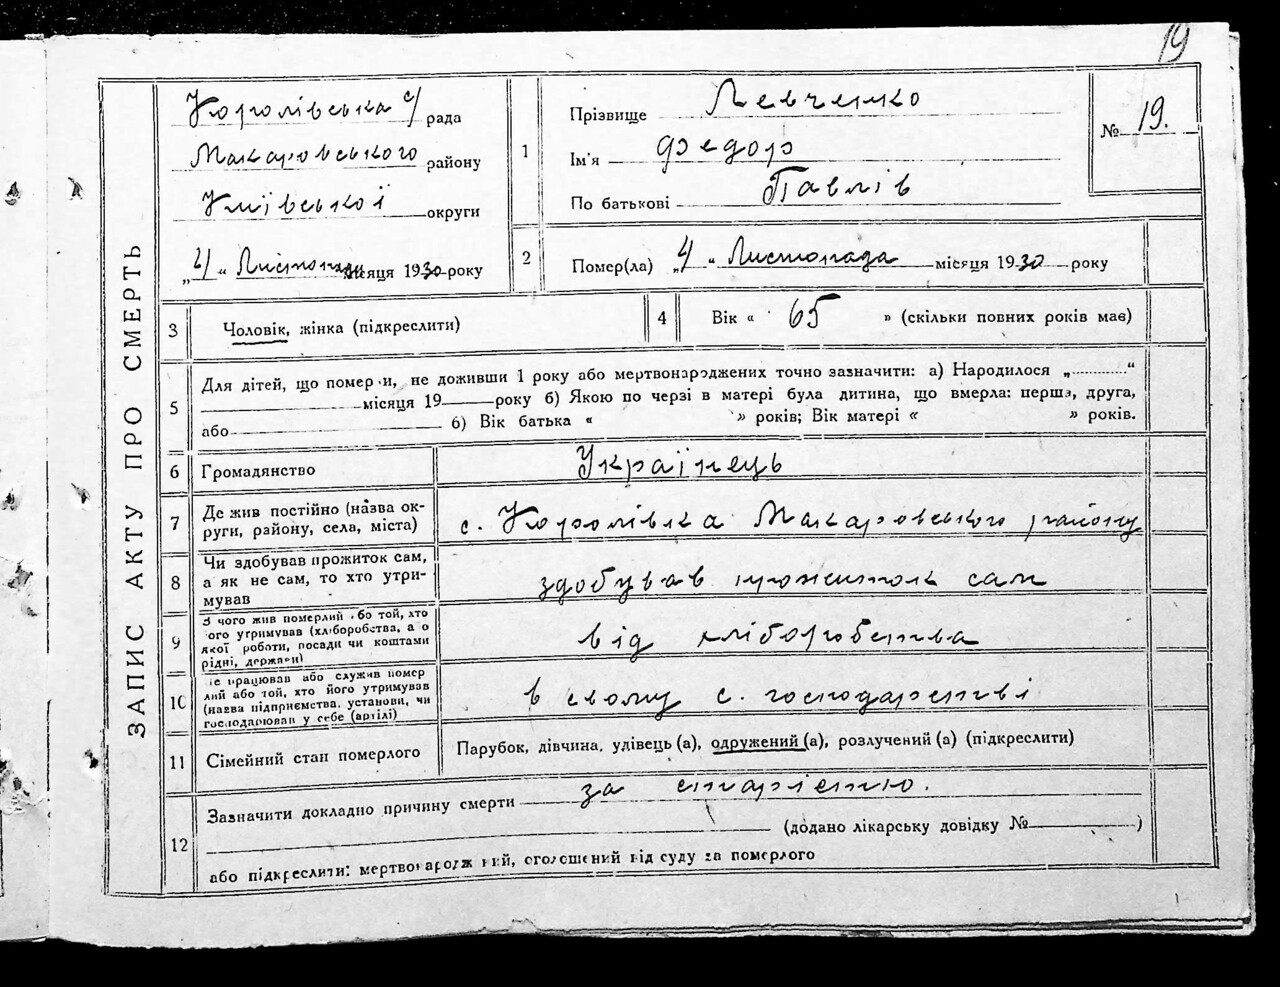 19
ЗАПИС АКТУ ПРО СМЕРТЬ
Королівська с/рада
Макаровського району
округи
Листопада місяця 1930 року
1
Прізвище Левченко
Ім'я Федор
По батькові Павлів
№ 19.
2
Помер(ла) „4“ Листопада місяця 1930 року
3
Чоловік, жінка (підкреслити)
4
Вік « 65 » (скільки повних років має)
5
Для дітей, що померли, не доживши 1 року або мертвонароджених точно зазначити: а) Народилося „............“
місяця 19 року б) Якою по черзі в матері була дитина, що вмерла: перша, друга,
або 6) Вік батька « » років; Вік матері « » років.
6
Громадянство
Українець
7
Де жив постійно (назва ок-
руги, району, села, міста)
с. Королівка Макаровського району
8
Чи здобував прожиток сам,
а як не сам, то хто утри-
мував
здобував прожиток сам
9
З чого жив померлий або той, хто
його утримував (хліборобства, а о
якої роботи, посади чи коштами
рідні, держави)
від хліборобства
10
Де працював або служив помер
лий або той, хто його утримував
(назва підприємства, установи, чи
господарював у себе (артілі)
в свому с. господарстві
11
Сімейний стан померлого
Парубок, дівчина, удівець (а), одружений (а), розлучений (а) (підкреслити)
12
Зазначити докладно причину смерти за старістю.
(додано лікарську довідку № )
або підкреслити: мертвонароджений, оголошений від суду за померлого